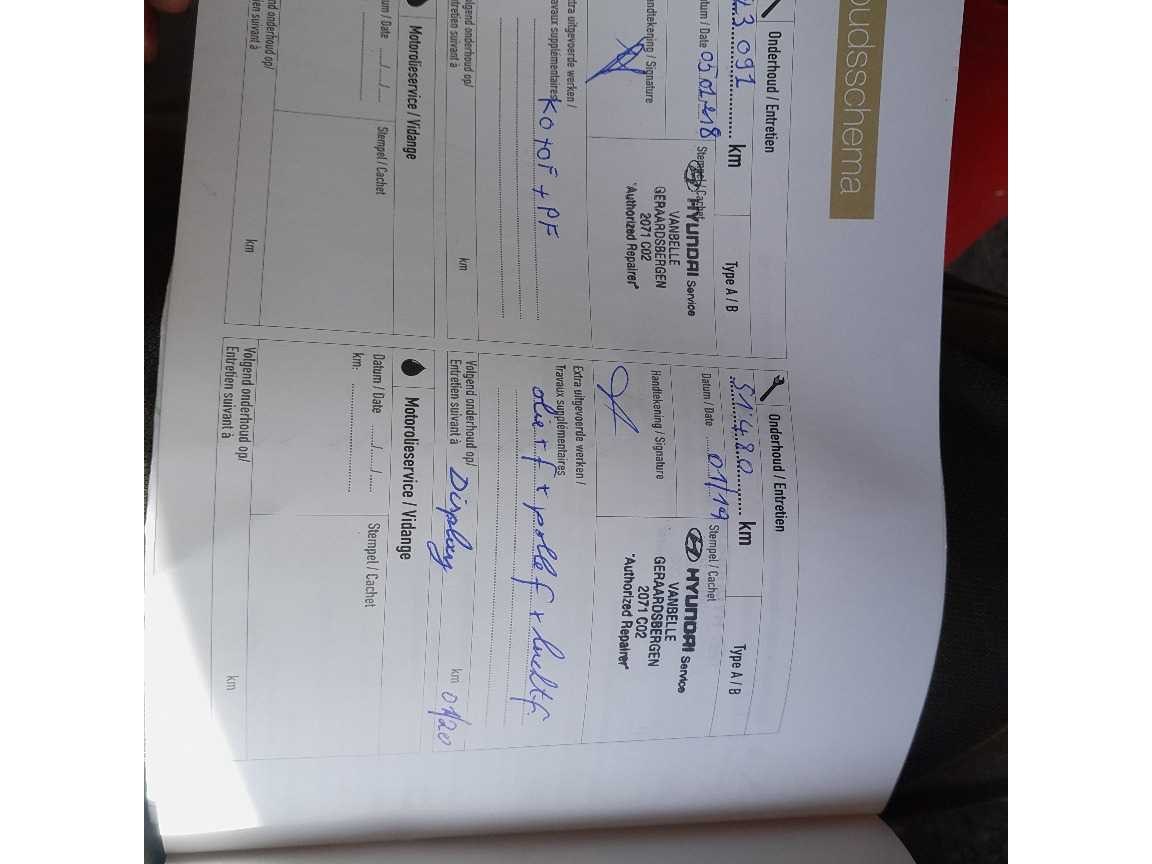 oudsschema
Onderhoud / Entretien
3 091 km
Type A / B
tum / Date 05.01.18
Stempel / Cachet
HYUNDAI Service
VANBELLE
GERAARDSBERGEN
2071 C02
"Authorized Repairer"
andtekening / Signature
tra uitgevoerde werken /
avaux supplémentaires
KO + OF + PF
olgend onderhoud op/
ntretien suivant à
km
Motorolieservice / Vidange
um / Date ..../..../....
Stempel / Cachet
nd onderhoud op/
en suivant à
km
Onderhoud / Entretien
51.480 km
Type A / B
Datum / Date 01/19
Stempel / Cachet
HYUNDAI Service
VANBELLE
GERAARDSBERGEN
2071 C02
"Authorized Repairer"
Handtekening / Signature
Extra uitgevoerde werken /
Travaux supplémentaires
olie + f + pollef + luchtf.
Volgend onderhoud op/
Entretien suivant à
Display km 01/20
Motorolieservice / Vidange
Datum / Date ...../...../.....
km: ....................
Stempel / Cachet
Volgend onderhoud op/
Entretien suivant à
km